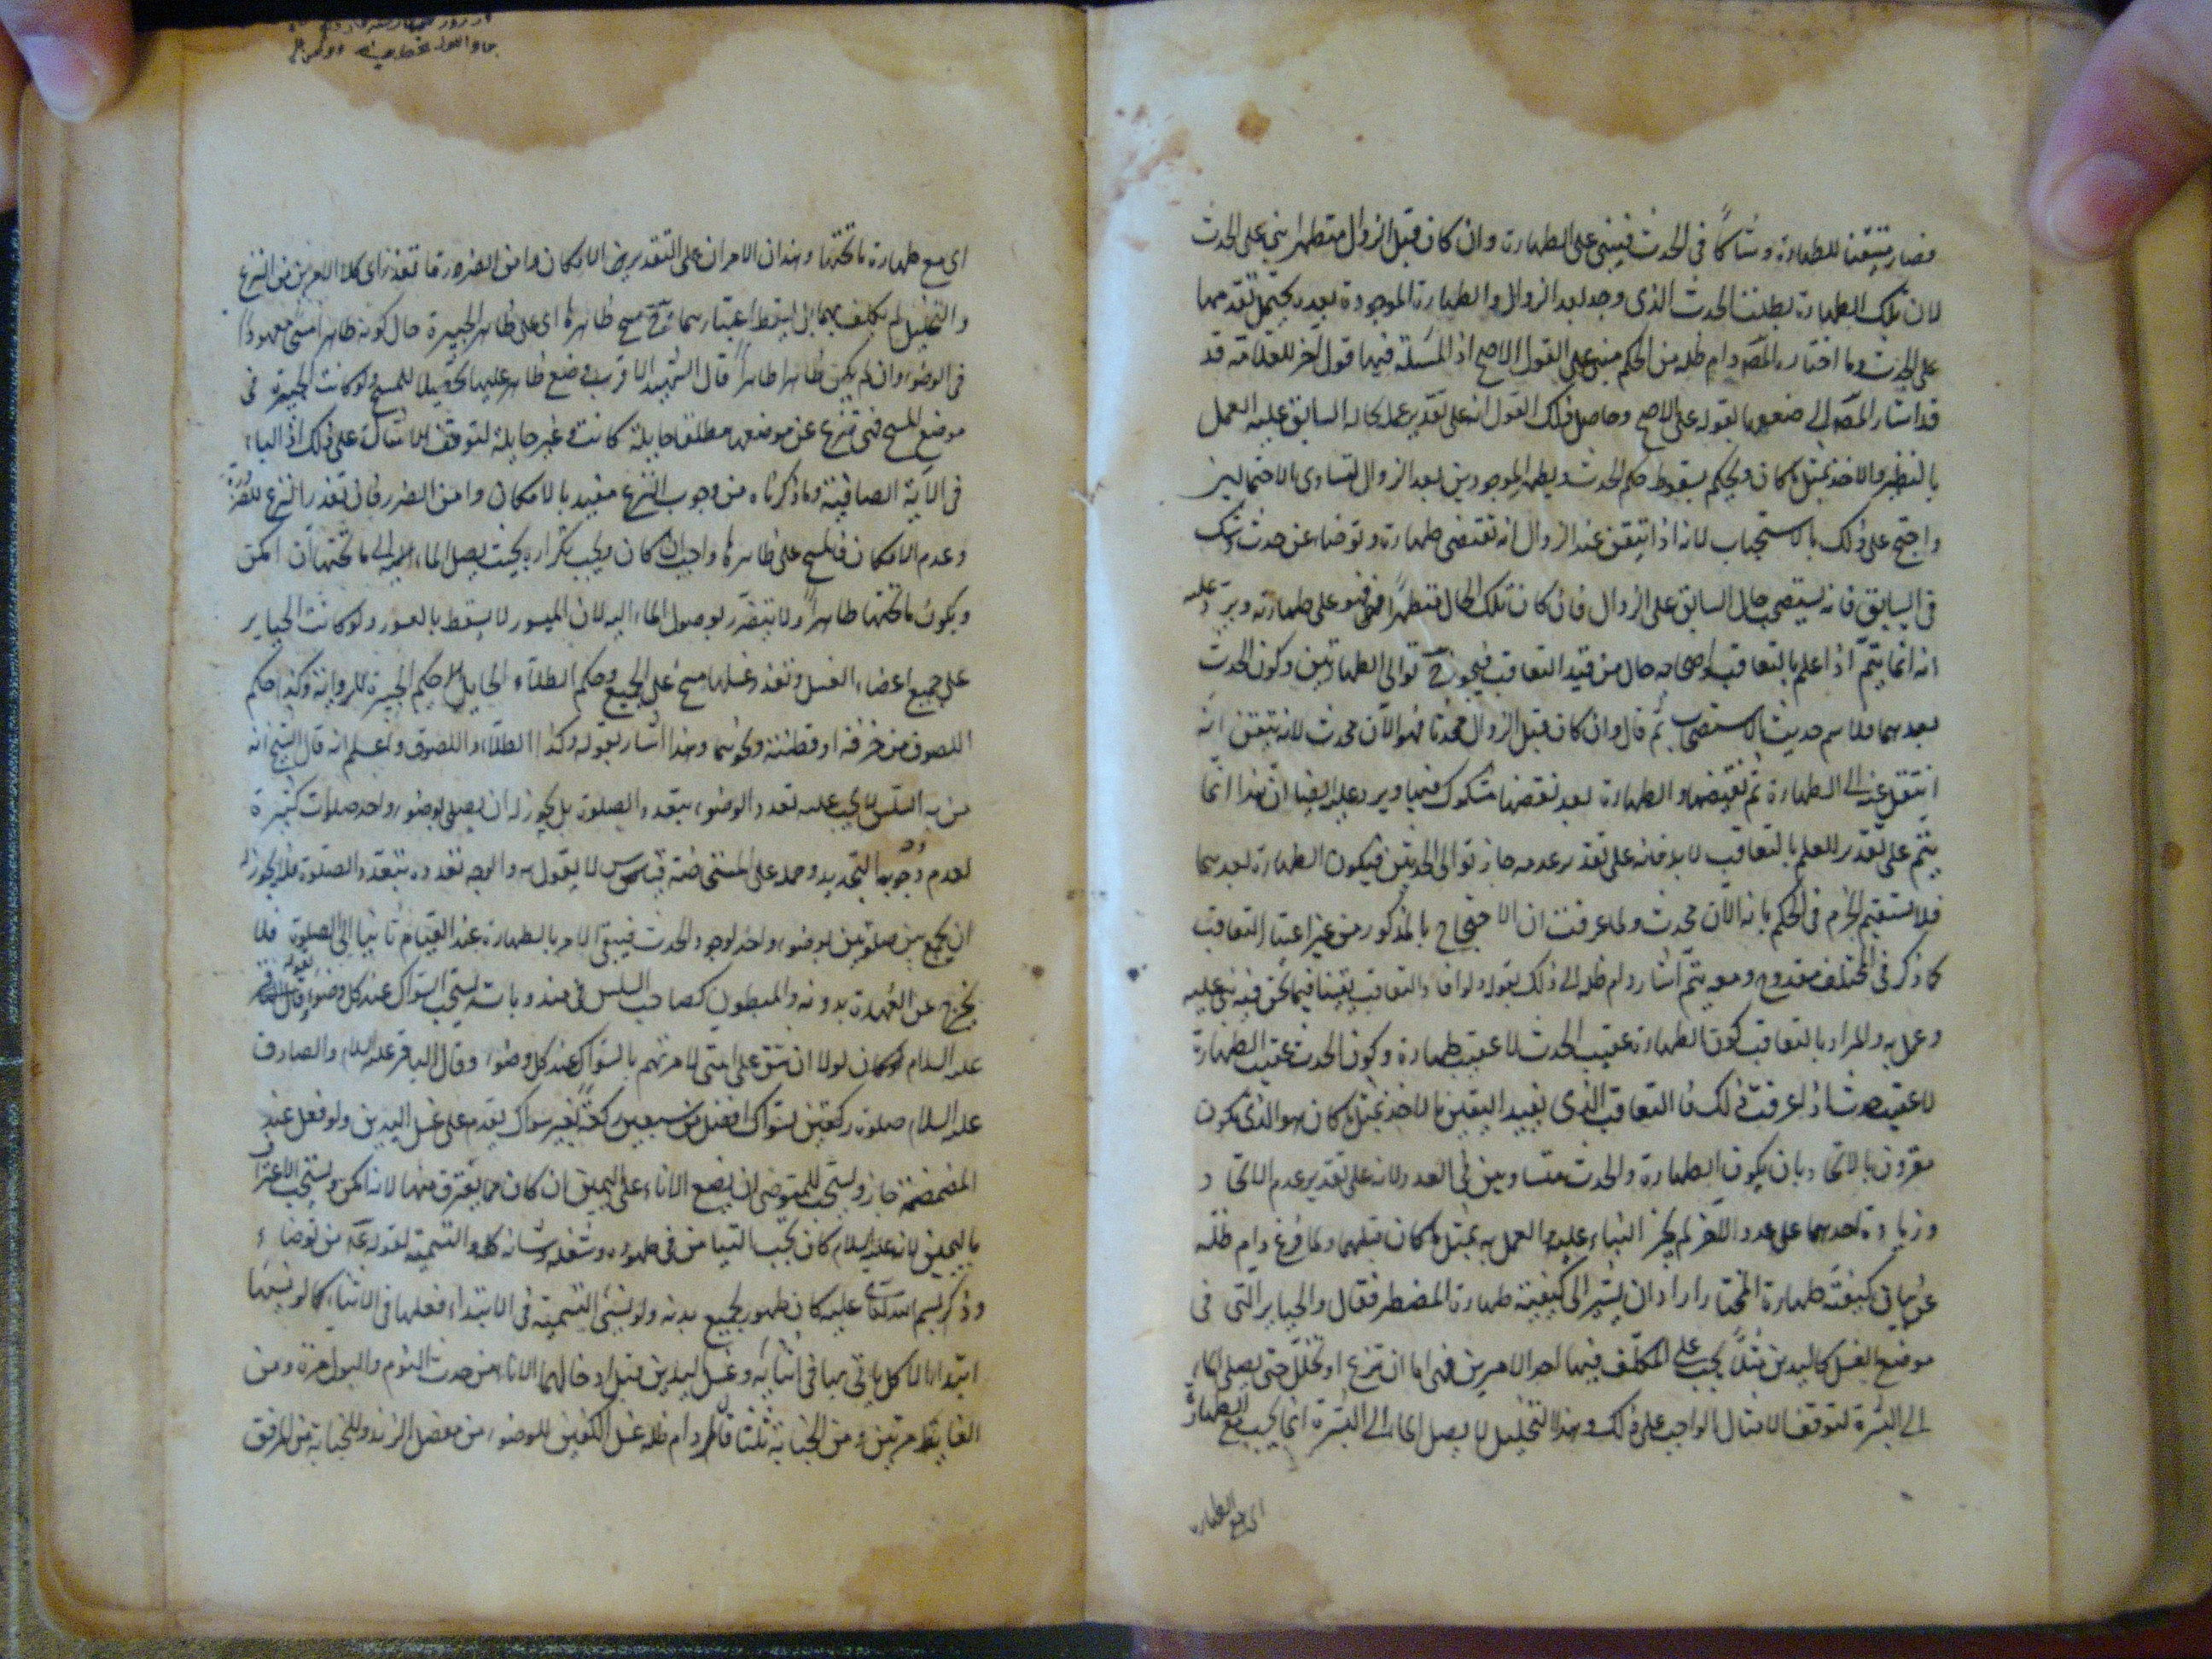 فصار متيقنا للطهارة وشاكا في الحدث فيبنى على الطهارة وان كان قبل الزوال متطهرا بنى على الحدث
لان تلك الطهارة بطلت بالحدث الذى وجد بعد الزوال والطهارة الموجودة بعده يحتمل تقدمها
على الحدث وما اختاره المصه دام ظله من الحكم مبنى على القول الاصح اذ المسئلة فيها قول آخر للعلامة قد
قد اشار المصه الى ضعفها بقوله على الاصح وحاصل ذلك القول انه على تقدير علمه بحاله السابق عليه العمل
بالنظير والاخذ بمثل ما كان ويحكم بسقوط حكم الحدث والطهر الموجودين بعد الزوال لتساوى الاحتمالين
واحتج على ذلك بالاستصحاب لانه اذا تيقن عند الزوال انه نقض طهارة وتوضا عن حدث وشك
في السابق فانه يستصحب حال السابق على الزوال فان كان تلك الحال متطهرا فهو على طهارته ويرد عليه
انه انما يتم اذا علم بالتعاقب حال من قيد التعاقب فيجوز ح توالى الطهارتين وكون الحدث
بعدهما فلا سم حديث الاستصحاب ثم قال وان كان قبل الزوال محدثا فهو الآن محدث لانه تيقن انه
انتقل عنه الى الطهارة ثم نقضها والطهارة بعد نقضها مشكوك فيها ويرد عليه ايضا ان هذا انما
يتم على تقدير العلم بالتعاقب لا بدونه فانه على تقدير عدمه جاز توالى الحدثين فيكون الطهارة بعدهما
فلا يستقيم الجزم في الحكم بانه الآن محدث ولما عرفت ان الاحتجاج بالمذكور من غير اعتبار التعاقب
كما ذكر في المختلف مقدوح ومعه يتم اشار دام ظله الى ذلك بقوله ولو افاد التعاقب يقينا فيما نحن فيه بنى عليه
وعمل به والمراد بالتعاقب كون الطهارة عقيب الحدث لا عقيب طهارة وكون الحدث عقيب الطهارة
لا عقيب حدث اذا عرفت ذلك فالتعاقب الذى يفيد اليقين بالاخذ بمثل ما كان هو الذى يكون
مقرون بالاتحاد بان يكون الطهارة والحدث متساويين في العدد لانه على تقدير عدم الاتحاد
وزيادة احدهما على عدد الآخر لم يجز البناء عليه والعمل به بمثل ما كان قبلهما ولما فرغ دام ظله
عن بيان كيفية طهارة المختار اراد ان يشير الى كيفية طهارة المضطر فقال والجباير التى في
موضع الغسل كاليدين مثلا يجب على المكلف فيها احد الامرين فهى اما ان تنزع او تخلل حتى يصل الماء
الى البشرة لتوقف الامتثال الواجب على ذلك وهذا التخليل لا يصل الماء الى البشرة انما يجب مع الطهارة
اى مع الطهارة
اى مع طهارة ما تحتها وهذان الامران على التقديرين مع الامكان وامن الضرر فاما تعذر اى كلا الامرين من النزع
والتخليل لم يكلف بهما بل يسقط اعتبارهما وح مسح ظاهرها اى على ظاهر الجبيرة حال كونه طاهرا مسحا معهودا
في الوضوء وان لم يكن ظاهرها طاهرا قال الشهيد الاقرب وضع طاهر عليها تحصيلا للمسح ولو كانت الجبيرة في
موضع المسح فهى تنزع عن موضعها مطلقا حايلة كانت او غير حايلة لتوقف الامتثال على ذلك اذ الباء
في الآية الصافية وما ذكرناه من وجوب النزع مقيد بالامكان وامن الضرر فان تعذر النزع للضرر
وعدم الامكان فالمسح على ظاهرها واجب وان كان ويجب تكراره بحيث يصل الماء الى ما تحتها ان امكن
ويكون ما تحتها طاهرا ولا يتضرر بوصول الماء اليه لان الميسور لا يسقط بالمعسور ولو كانت الجباير
على جميع اعضاء الغسل وتعذر غسلها مسح على الجميع وحكم الطلاء الحايل حكم الجبيرة للرواية وكذا حكم
اللصوق من خرقة او قطنة ونحوهما وهذا اشار بقوله وكذا الطلاء واللصوق واعلم انه قال الشيخ انه
من به السلس لا يجب عليه تعدد الوضوء بتعدد الصلوة بل يجوز له ان يصلى بوضوء واحد صلوات كثيرة
لعدم وجوب التجديد وحمله على المستحاضة قياس لا يقول به والوجه تعدده بتعدد الصلوة فلا يجوز له
ان يجمع بين صلوتين بوضوء واحد لوجود الحدث فيبقى الامر بالطهارة عند القيام ثانيا الى الصلوة فلا
يخرج عن العهدة بدونه والمبطون كصاحب السلس في مندوباته يستحب السواك عند كل وضوء لقوله
عليه السلام لولا ان اشق على امتى لامرتهم بالسواك عند كل وضوء وقال الباقر عليه السلام والصادق
عليه السلام صلوة ركعتين بسواك افضل من سبعين ركعة بغير سواك يقدم على غسل اليدين ولو فعل عند
المضمضة جاز ويستحب للمتوضى ان يضع الاناء على اليمين ان كان مما يغترف منها لانه امكن ويستحب الاغتراف
باليمين لانه عليه السلام كان يحب التيامن في طهوره وشغله وشانه كله والتسمية لقوله عم من توضاء
وذكر بسم الله تعالى عليه كان طهور لجميع بدنه ولو نسى التسمية في الابتداء فعلها في الاثناء كما لو نسيها
ابتداء الاكل ياتى بها في اثنائه وغسل اليدين قبل ادخالهما الاناء من حدث النوم والبول مرة ومن
الغايط مرتين ومن الجنابة ثلثا قال دام ظله غسل الكفين للوضوء من مفصل الزند وللجنابة من المرفق